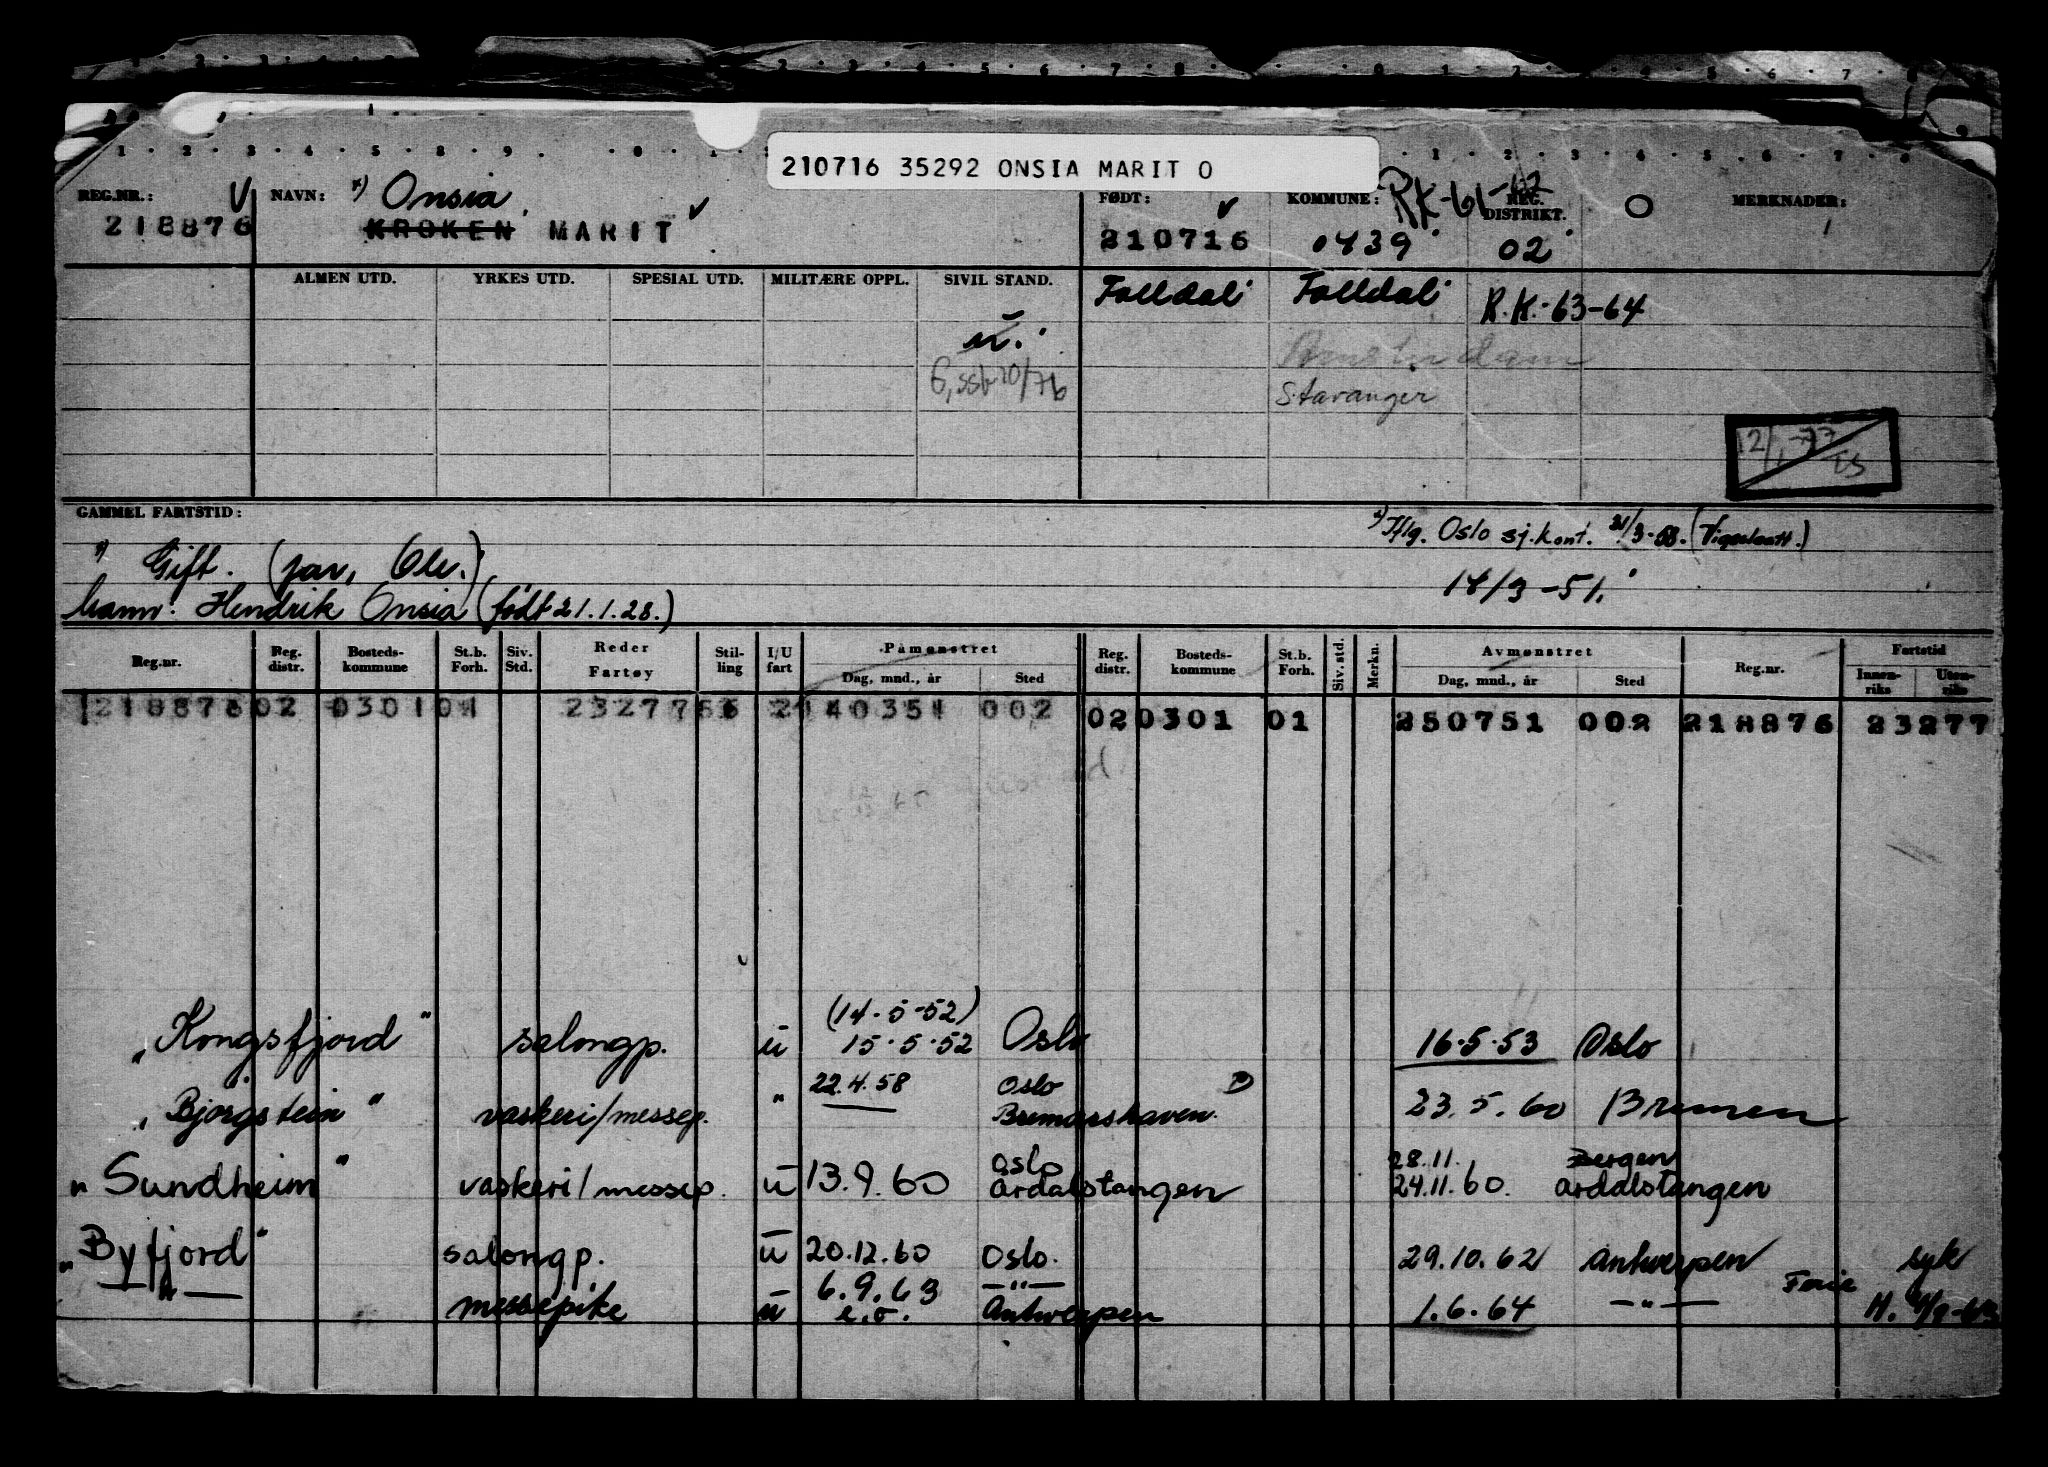 210716 35292 ONSIA MARIT O
REG.NR.: V NAVN: x) Onsia, FØDT: KOMMUNE: RK-61-62 REG. DISTRIKT. O MERKNADER:
218876 KROKEN MARIT 210716 0439 02
ALMEN UTD. YRKES UTD. SPESIAL UTD. MILITÆRE OPPL. SIVIL STAND. Folldal Folldal R.K.-63-64
u.
Amsterdam
Stavanger
12/1-77
GAMMEL FARTSTID: x) Iflg. Oslo sj.kont. 21/3-58.
x) Gift.
Mann: Hendrik Onsia (født 21.1.28.) 14/3-51.
Reg.nr. Reg. distr. Bosteds-kommune St.b. Forh. Siv. Std. Reder Fartøy Stil-ling I/U fart Påmønstret Dag, mnd., år Sted Reg. distr. Bosteds-kommune St.b. Forh. Siv. std. Merkn. Avmønstret Dag, mnd., år Sted Reg.nr. Fartstid Innen-riks Uten-riks
218876 02 0301 01 23277 66 2 140351 002 02 0301 01 250751 002 218876 23277
(14.5-52)
"Kongsfjord" salongp. u 15.5.52 Oslo 16.5.53 Oslo
22.4.58 Oslo D
"Bjørgstein" vaskeri/messep. " Bremershaven. 23.5.60 Bremen
Oslo 28.11. Bergen
"Sundheim" vaskeri/messep. u 13.9.60 Årdalstangen 24.11.60. Årdalstangen
"Byfjord" salongp. u 20.12.60 Oslo. 29.10.62 Antwerpen syk
—"— 6.9.63 —"— Ferie
messepike u e.o. Antwerpen 1.6.64 —"—